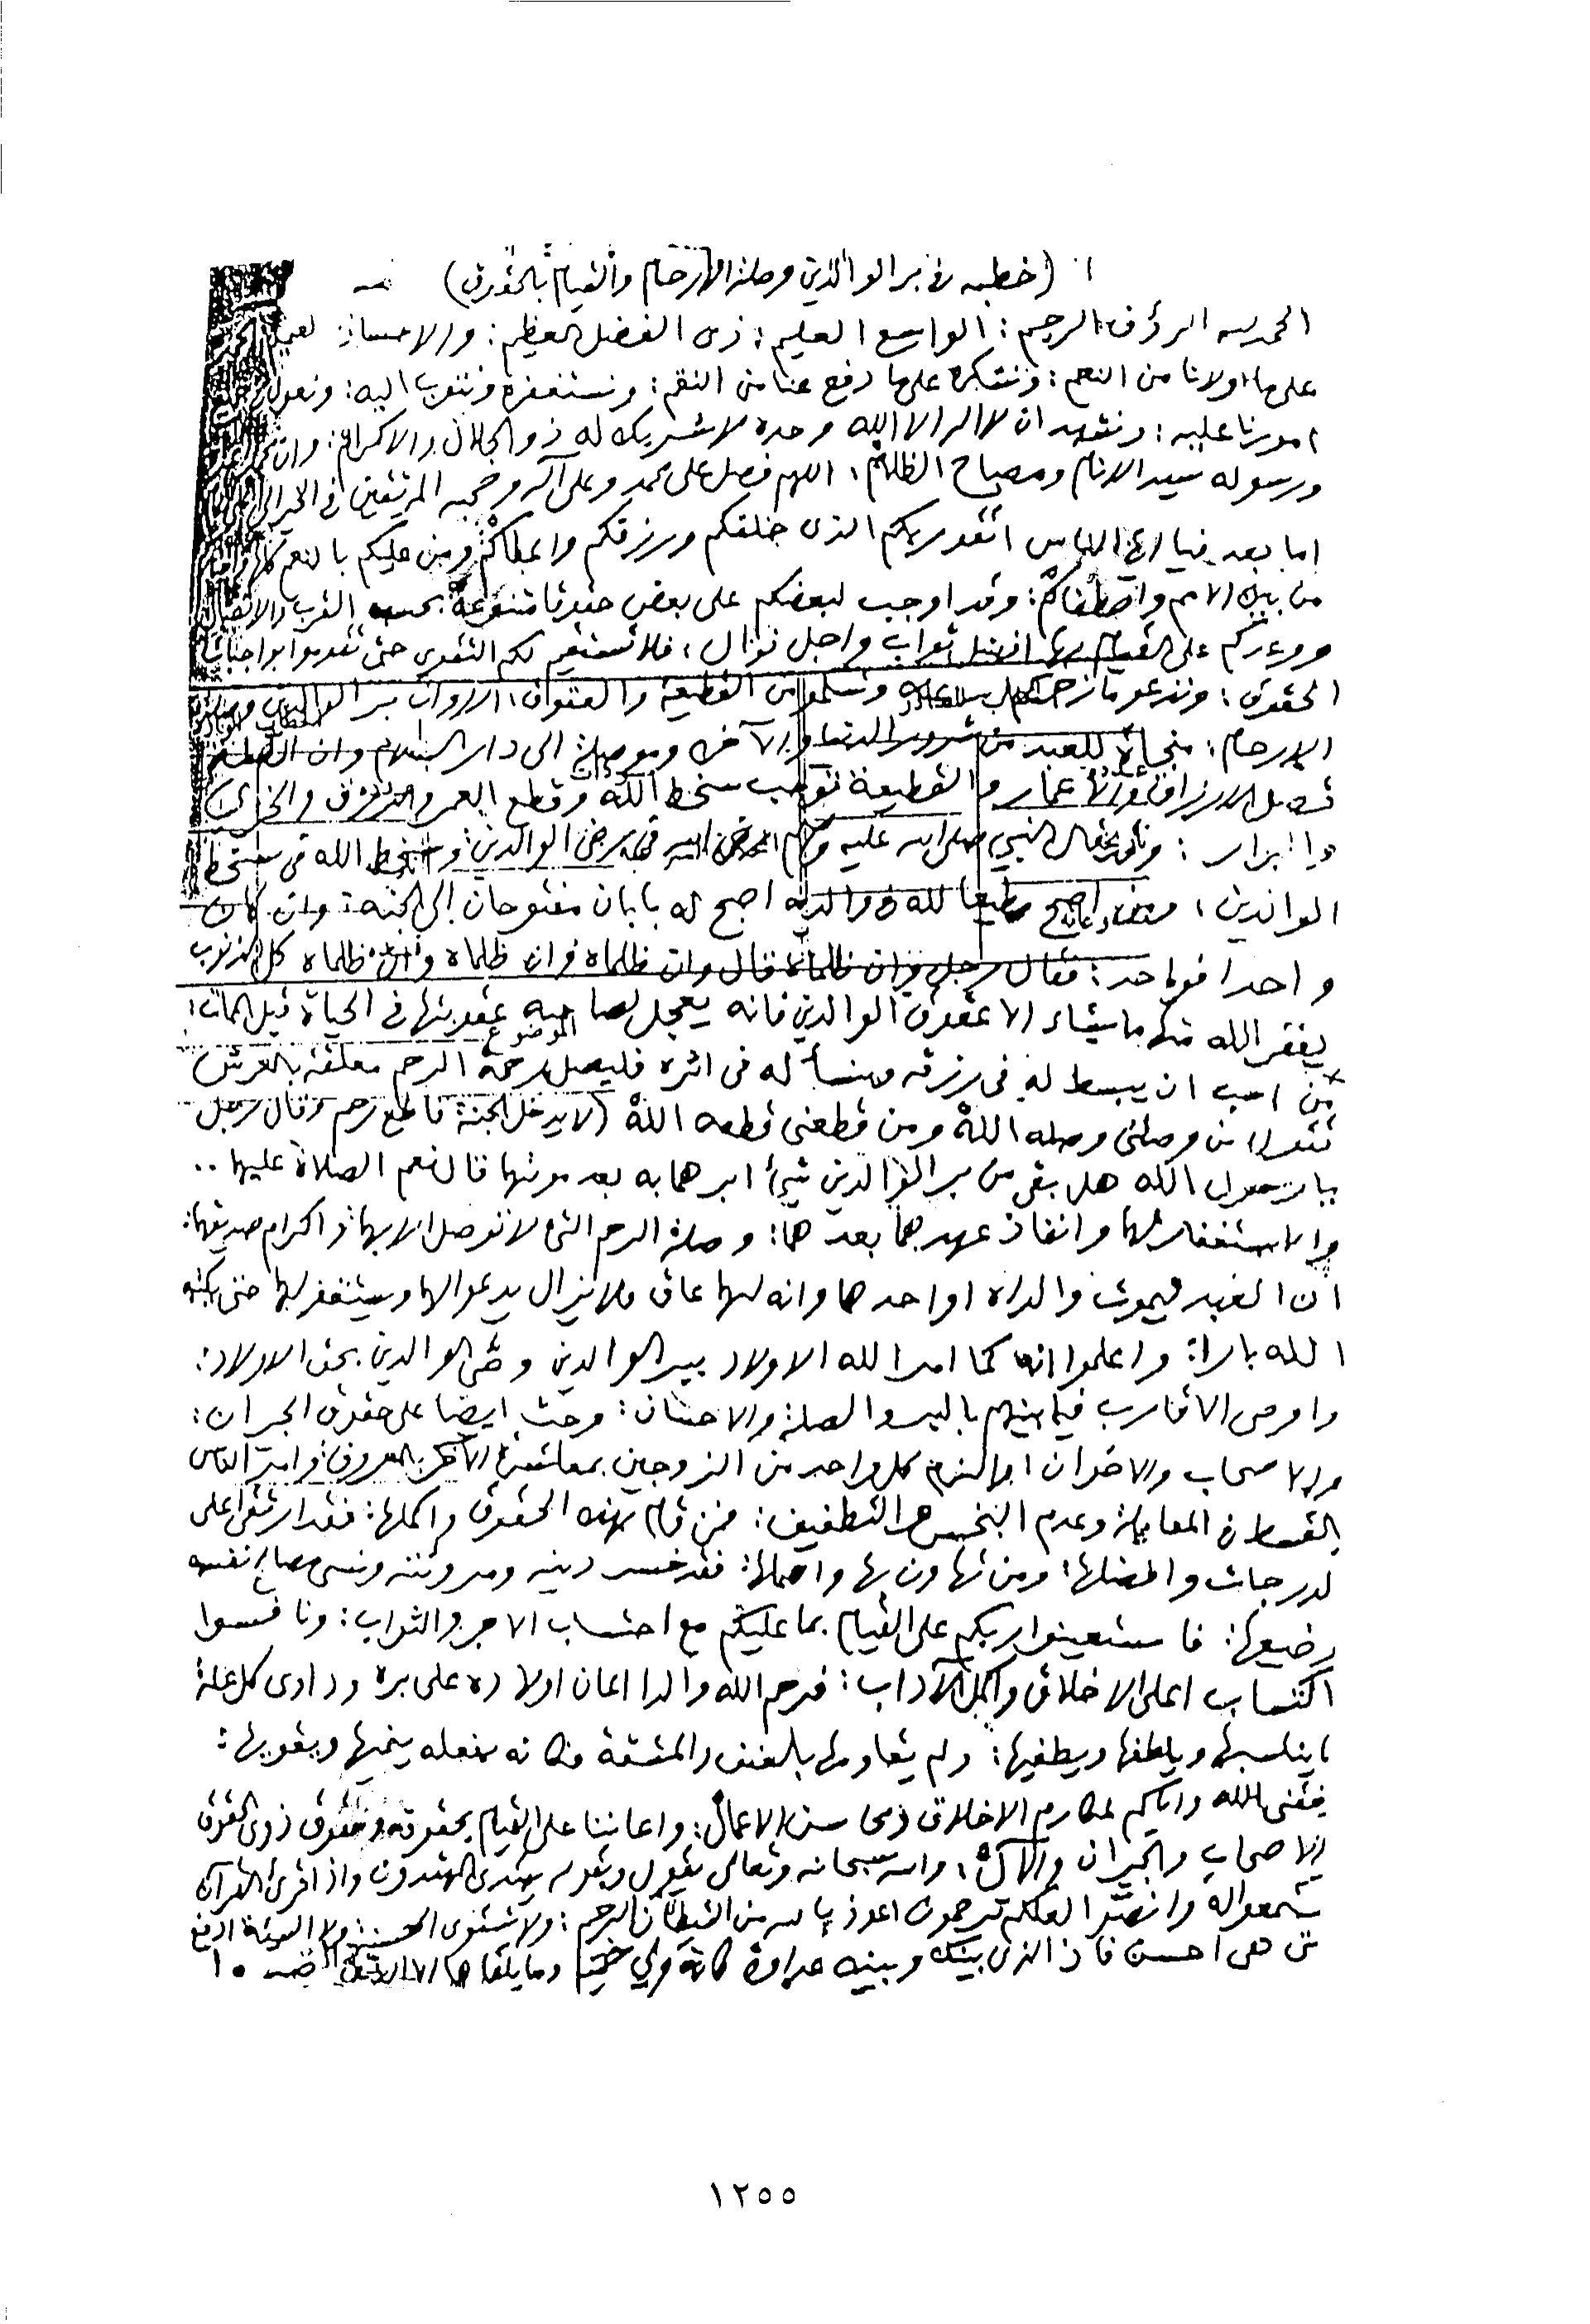 (خطبه في بر الوالدين وصلة الارحام والقيام بالحقوق)
الحمد لله الرؤف الرحيم: الواسع العليم: ذى الفضل العظيم: والاحسان
على ما اولانا من النعم: ونشكره على ما دفع عنا من النقم: ونستغفره ونتوب اليه: ونعول
امورنا عليه: ونشهد ان لا اله الا الله وحده لا شريك له ذو الجلال والاكرام: وان محمدا
ورسوله سيد الانام ومصباح الظلام، اللهم فصل على محمد وعلى آله وصحبه المرتقين في الخير الى
اما بعد فيا ايها الناس اتقو ربكم الذى خلقكم ورزقكم واعطاكم ومن عليكم بالنعم كلها
من بين الامم واصطفاكم: وقد اوجب لبعضكم على بعض حقوقا متنوعة بحسب القرب والاتصال
ووعدكم على القيام بها افضل ثواب واجل نوال، فلا تستقيم لكم التقوى حتى تقوموا بواجبات
الحقوق: وتسلمو من القطيعة والعقوق، الا وان بر الوالدين وصلة
الارحام: منجاة للعبد من شرور الدنيا والآخره وموصلة الى دار السلام وان
الارزاق والاعمار والقطيعة توجب سخط الله وقطع العمر والرزق والخزي
قال النبي صلى الله عليه وسلم رضى الله في رضى الوالدين: وسخط الله في سخط
الوالدين، ومن اصبح مطيعا لله في والديه اصبح له بابان مفتوحان إلى الجنة: وان كان
واحدا فواحد: فقال رجل وان ظلماه قال وان ظلماه وان ظلماه وان ظلماه كل الذنوب
يغفر الله منها ما يشاء الا عقوق الوالدين فانه يعجل لصاحبه عقوبتها في الحياة قبل الممات:
الموضوع
من احب ان يبسط له في رزقه وينسأ له في اثره فليصل رحمة الرحم معلقة بالعرش
تقول من وصلني وصله الله ومن قطعني قطعه الله (لا يدخل الجنة قاطع رحم وقال رجل
يا رسول الله هل بقي من بر الوالدين شئ ابرهما به بعد موتهما قال نعم الصلاة عليهما ..
والاستغفار لهما وانفاذ عهدهما بعدهما: وصلة الرحم التي لا توصل الا بهما: واكرام صديقهما:
ان العبد ليموت والداه او احدهما وانه لهما عاق ولا يزال يدعوا لهما ويستغفر لهما حتى يكتبه
الله بارا: واعلموا انه كما امر الله الاولاد ببر الوالدين وصى الوالدين بحق الاولاد:
واوصى الاقارب فيما بينهم بالبر والصلة والاحسان: وحث ايضا على حقوق الجيران:
والاصحاب والاخوان والزم كل واحد من الزوجين بمعاشرة الآخر بالمعروف: وامر الناس
بالقسط في المعاملة وعدم البخس والتطفيف: فمن قام بهذه الحقوق واكملها: فقد ارتقى اعلى
الدرجات وافضلها: ومن تهاون بها واهملها: فقد خسر دينه ومروئته ونسى مصالح نفسه
وضيعها: فاستعينوا بربكم على القيام بما عليكم مع احتساب الاجر والثواب: ونافسوا
اكتساب اعلى الاخلاق واكمل الآداب: فرحم الله والدا اعان اولاده على بره وداوى كل علة
بما يناسبها ويلطفها ويطفيها: ولم يقاومها بالعنف والمشقة فكانه بفعله ينميها ويقويها:
وفقني الله واياكم لمكارم الاخلاق ومحاسن الاعمال: واعاننا على القيام بحقوقه وحقوق ذوى الحقوق
الاصحاب والجيران والآل، والله سبحانه وتعالى يقول وبقوله يهتدى المهتدون واذا قرئ القرآن
فاستمعوا له وانصتو لعلكم ترحمون اعوذ بالله من الشيطان الرجيم: ولا تستوى الحسنة ولا السيئة ادفع
بالتي هي احسن فاذا الذى بينك وبينه عداوة كانه ولي حميم وما يلقاها الا
١٢٥٥